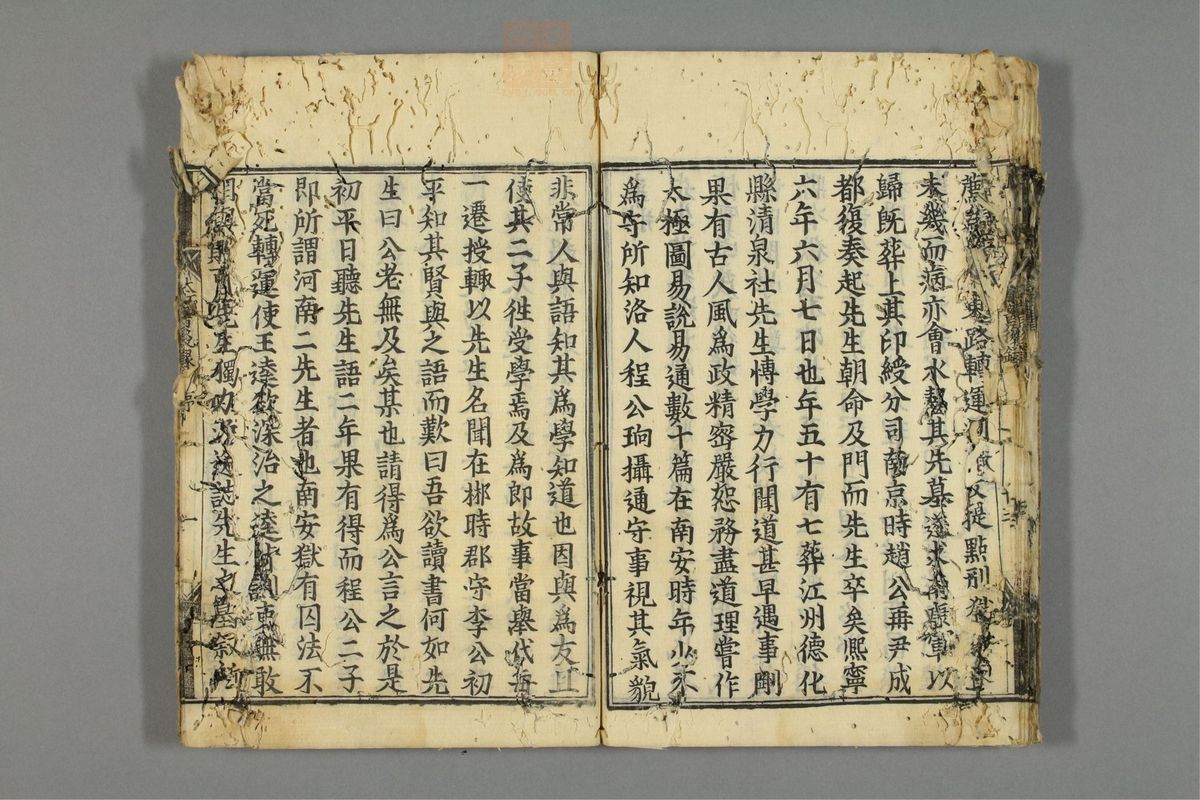 東路轉運 又提點刑
未幾而病亦會水齧其先墓遂求南康軍以
歸旣葬上其印綬分司南京時趙公再尹成
都復奏起先生朝命及門而先生卒矣熈寧
六年六月七日也年五十有七葬江州德化
縣清泉社先生博學力行聞道甚早遇事剛
果有古人風爲政精密嚴恕務盡道理嘗作
太極圖易說易通數十篇在南安時年少不
爲守所知洛人程公珦攝通守事視其氣貌
非常人與語知其爲學知道也因與爲友且
使其二子徃受學焉及爲郎故事當舉代每
一遷授輒以先生名聞在郴時郡守李公初
平知其賢與之語而歎曰吾欲讀書何如先
生曰公老無及矣某也請得爲公言之於是
初平日聽先生語二年果有得而程公二子
即所謂河南二先生者也南安獄有囚法不
當死轉運使王逵欲深治之逵苛刻吏無敢
相與 先生獨力 誌先生之墓